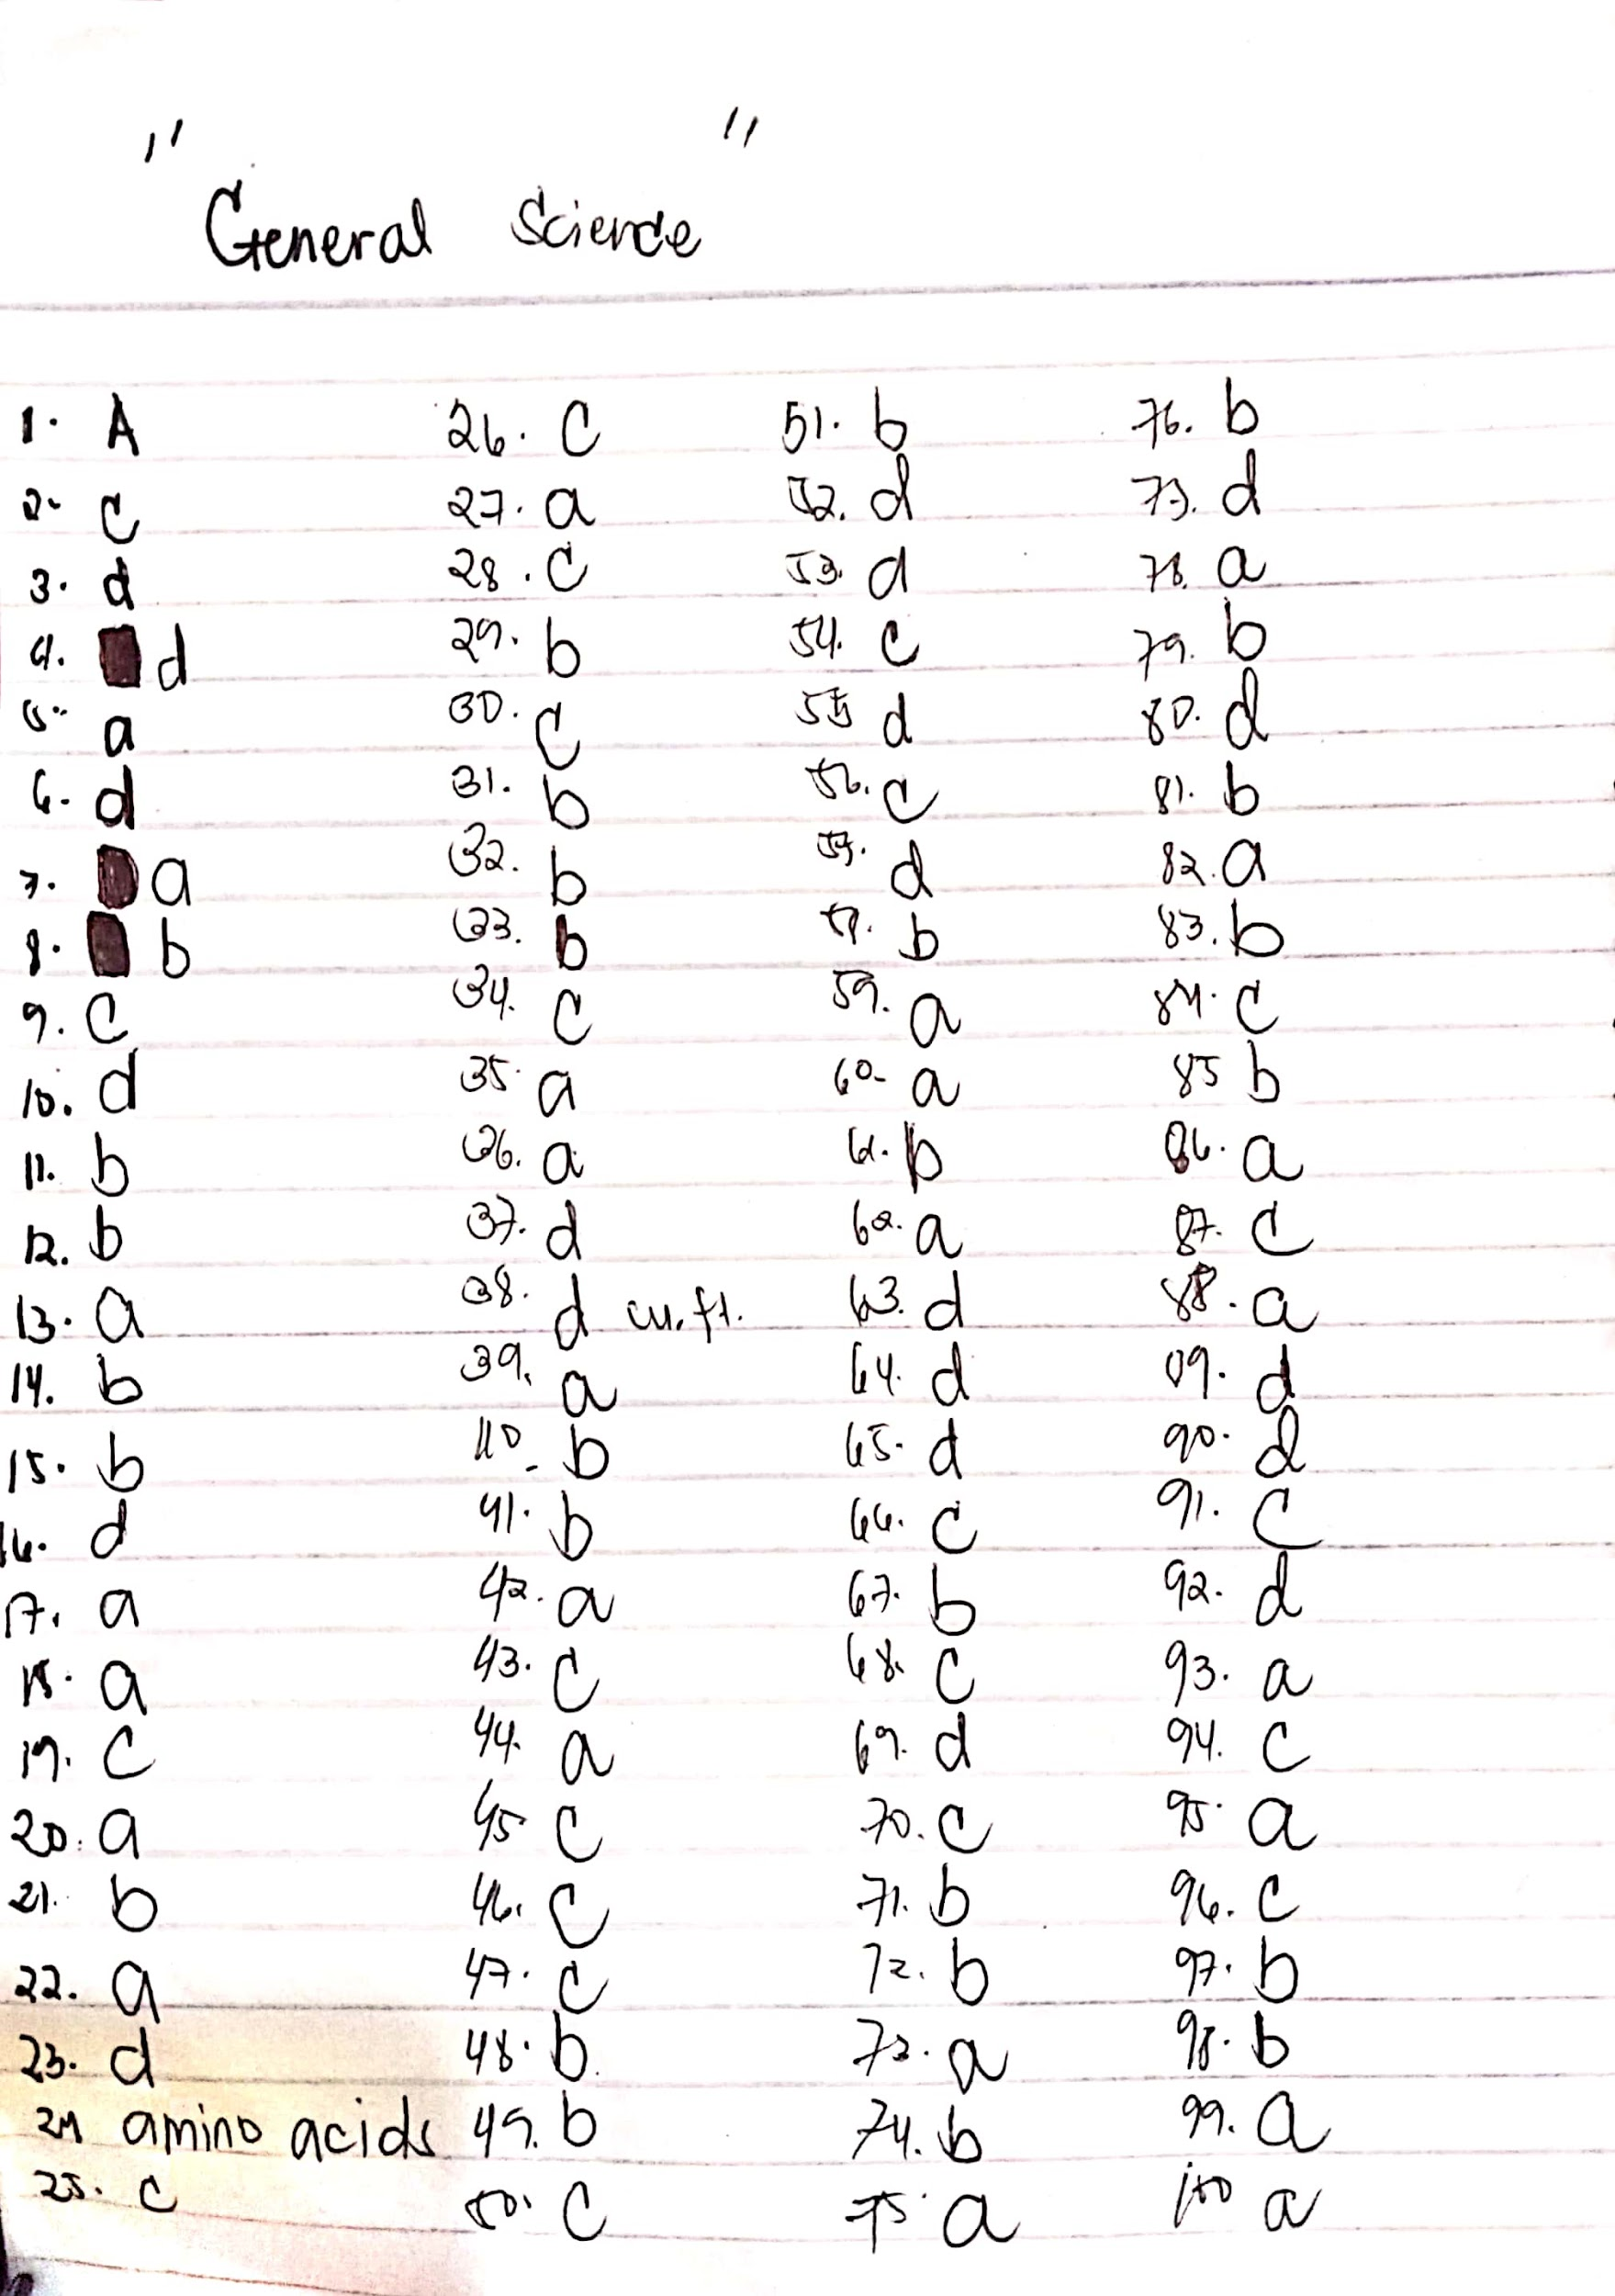 " "
General Science
1. A
2. c
3. d
4. d
5. a
6. d
7. a
8. b
9. c
10. d
11. b
12. b
13. a
14. b
15. b
16. d
17. a
18. a
19. c
20. a
21. b
22. a
23. d
24 amino acids
25. c
26. c
27. a
28. c
29. b
30. c
31. b
32. b
33. b
34. c
35. a
36. a
37. d
38. d cu.ft.
39. a
40. b
41. b
42. a
43. c
44. a
45 c
46. c
47. c
48. b.
49. b
50. c
51. b
52. d
53. d
54. c
55 d
56. c
57. d
58. b
59. a
60- a
61. b
62. a
63. d
64. d
65. d
66. c
67. b
68. c
69. d
70. c
71. b
72. b
73. a
74. b
75 a
76. b
77. d
78. a
79. b
80. d
81. b
82. a
83. b
84. c
85 b
86. a
87. c
88. a
89. d
90. d
91. c
92. d
93. a
94. c
95. a
96. c
97. b
98. b
99. a
100 a